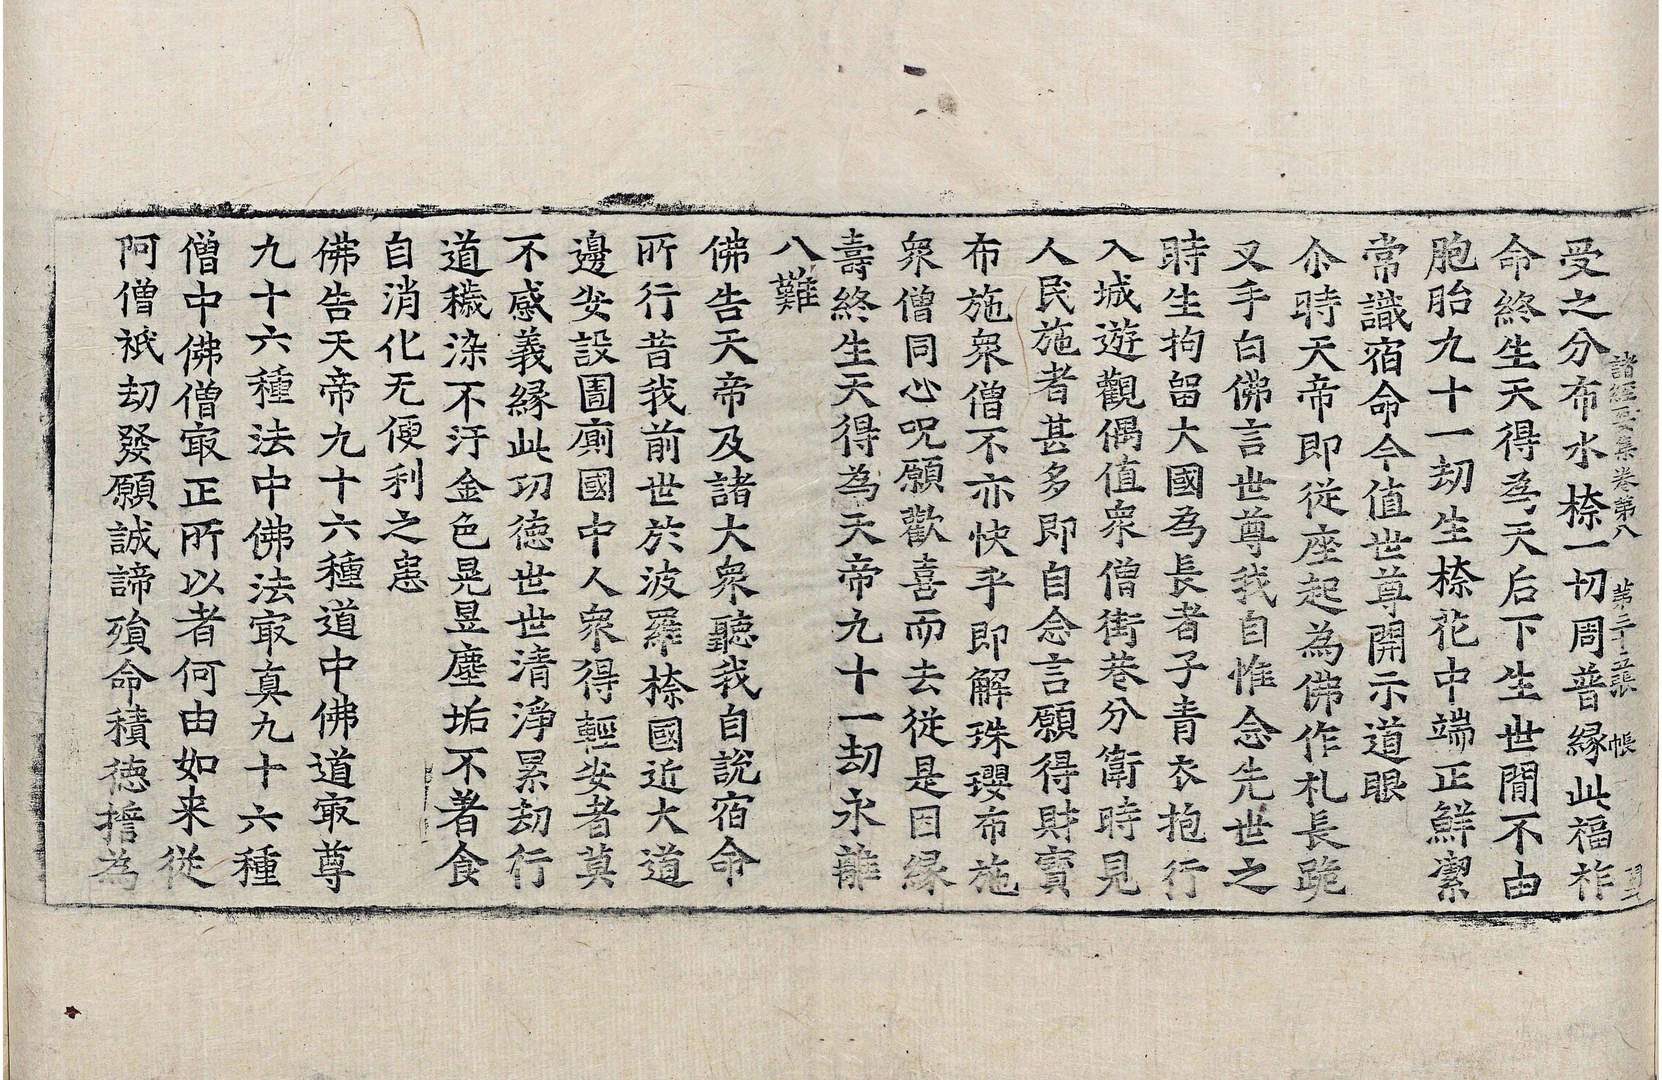 受之分布水㮈一切周普緣此福祚
命終生天得為天后下生世間不由
胞胎九十一劫生㮈花中端正鮮潔
常識宿命今值世尊開示道眼
尒時天帝即從座起為佛作礼長跪
叉手白佛言世尊我自惟念先世之
時生拘留大國為長者子青衣抱行
入城遊觀偶值衆僧街巷分衛時見
人民施者甚多即自念言願得財寶
布施衆僧不亦快乎即解珠瓔布施
衆僧同心呪願歡喜而去從是因緣
壽終生天得為天帝九十一劫永離
八難
佛告天帝及諸大衆聽我自説宿命
所行昔我前世於波羅㮈國近大道
邊安設圊廁國中人衆得輕安者莫
不感義緣此功德世世清淨累劫行
道穢染不汙金色晃昱塵垢不著食
自消化无便利之患
佛告天帝九十六種道中佛道㝡尊
九十六種法中佛法㝡真九十六種
僧中佛僧㝡正所以者何由如来從
阿僧祇劫發願誠諦殞命積德誓為
諸經要集卷第八 第二十二張 帳